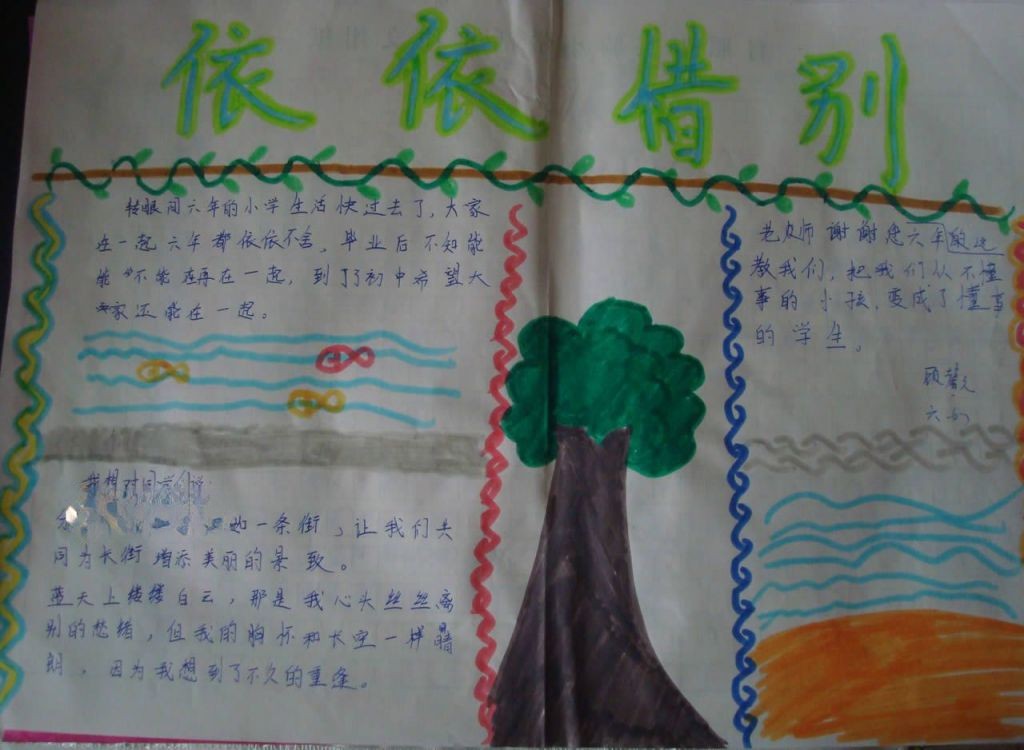 依依惜别
转眼间六年的小学生活快过去了，大家
在一起六年都依依不舍，毕业后不知能
能不能在再在一起，到了了初中希望大
家还能在一起。
我想对同学们说：
如一条街，让我们共
同为长街增添美丽的景致。
蓝天上缕缕白云，那是我心头丝丝离
别的愁绪，但我的胸怀和长空一样晴
朗，因为我想到了不久的重逢。
老师 谢谢您六年
教我们，把我们从不懂
事的小孩，变成了懂事
的学生。
顾
六